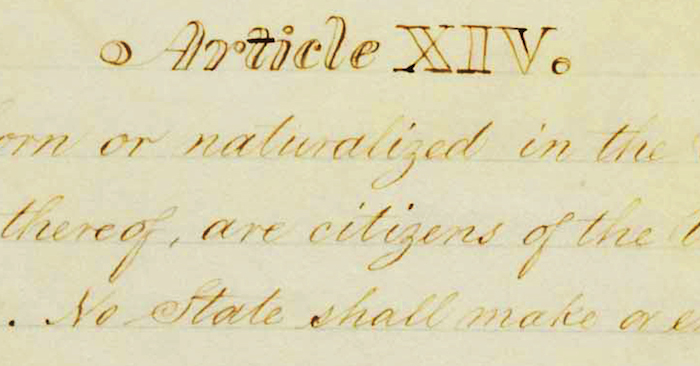 Article XIV.
orn or naturalized in the
thereof, are citizens of the
. No State shall make or e